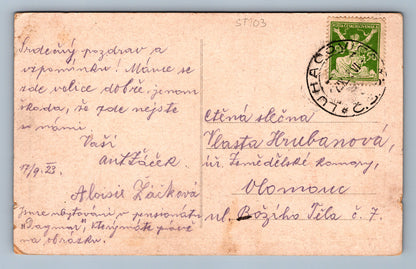 ST103
Srdečný pozdrav a
vzpomínku! Máme se
zde velice dobře, jenom
škoda, že zde nejste
s námi.
Vaší
Ant. Žáček.
17/9. 23.
Aloisie Žáčková
Jsme ubytováni v pensionátu
"Dagmar", který máte právě
na obrázku.
LUHAČOVICE
Ctěná slečna
Vlasta Hrubanová,
úř. Zemědělské komory,
Olomouc
ul. Božího Těla č. 7.